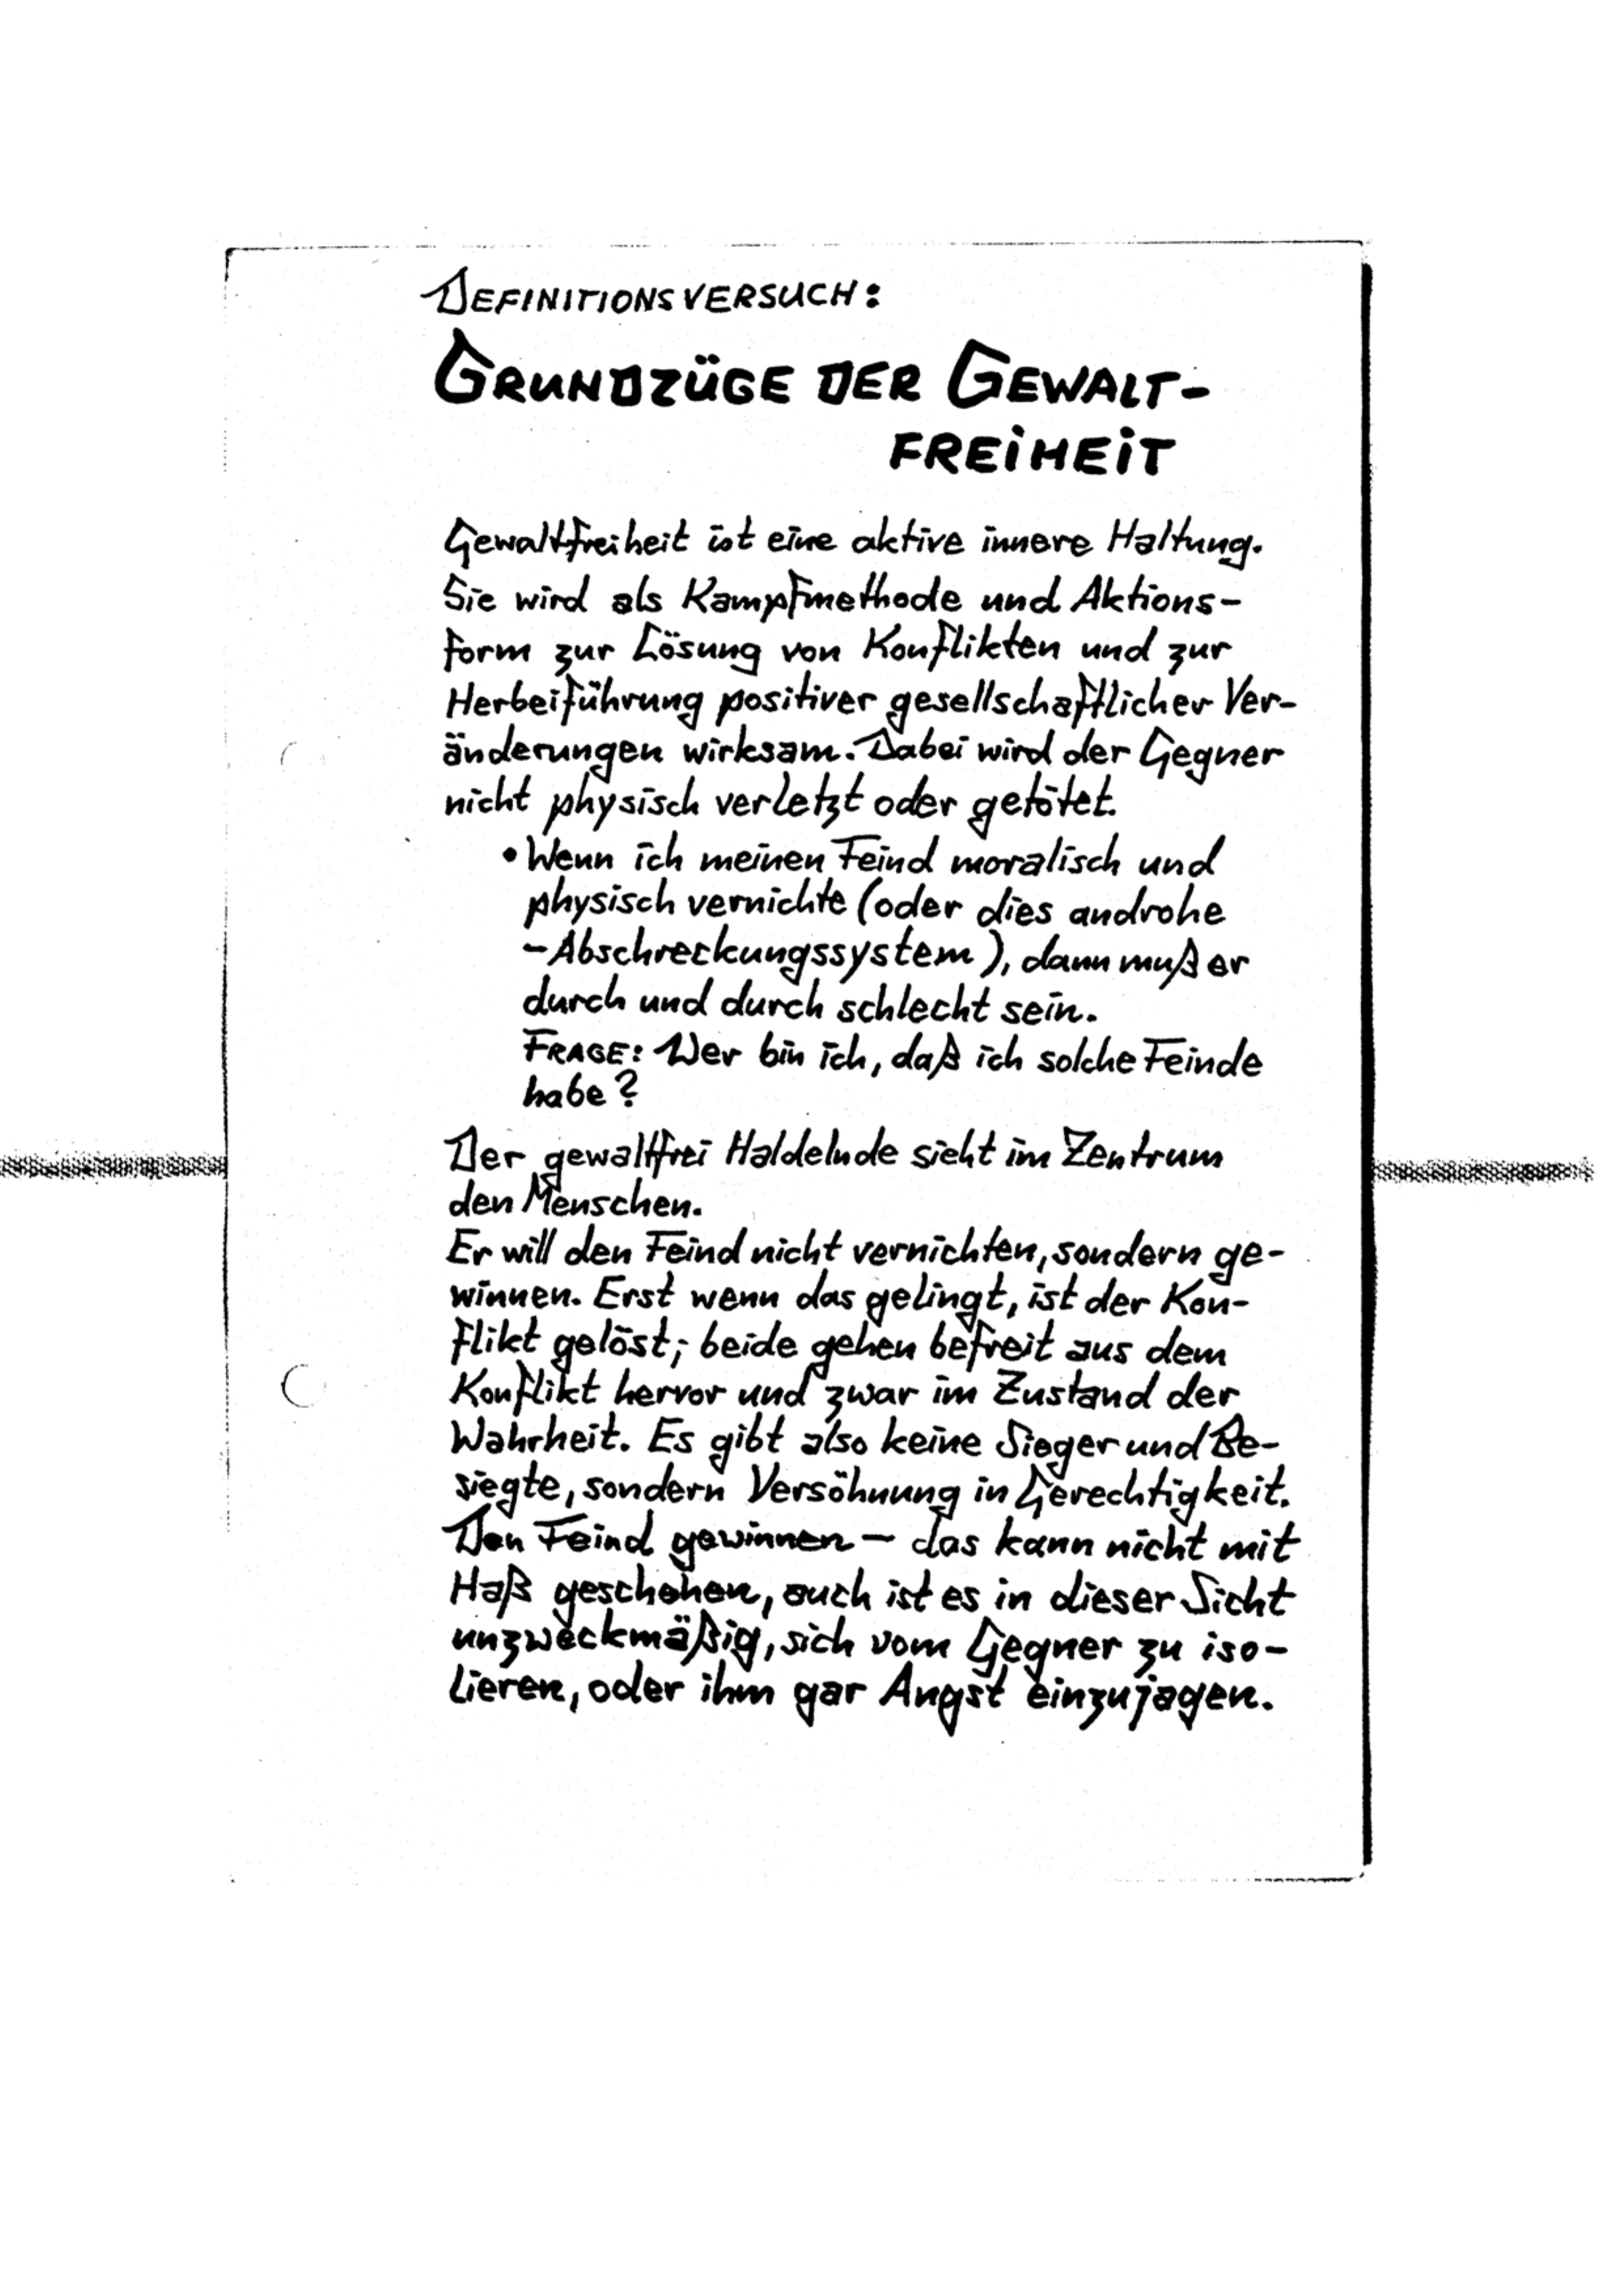 DEFINITIONSVERSUCH:
GRUNDZÜGE DER GEWALT-
FREIHEIT
Gewaltfreiheit ist eine aktive innere Haltung.
Sie wird als Kampfmethode und Aktions-
form zur Lösung von Konflikten und zur
Herbeiführung positiver gesellschaftlicher Ver-
änderungen wirksam. Dabei wird der Gegner
nicht physisch verletzt oder getötet.
• Wenn ich meinen Feind moralisch und
physisch vernichte (oder dies androhe
- Abschreckungssystem), dann muß er
durch und durch schlecht sein.
FRAGE: Wer bin ich, daß ich solche Feinde
habe?
Der gewaltfrei Haldelnde sieht im Zentrum
den Menschen.
Er will den Feind nicht vernichten, sondern ge-
winnen. Erst wenn das gelingt, ist der Kon-
flikt gelöst; beide gehen befreit aus dem
Konflikt hervor und zwar im Zustand der
Wahrheit. Es gibt also keine Sieger und Be-
siegte, sondern Versöhnung in Gerechtigkeit.
Den Feind gewinnen - das kann nicht mit
Haß geschehen, auch ist es in dieser Sicht
unzweckmäßig, sich vom Gegner zu iso-
lieren, oder ihm gar Angst einzujagen.